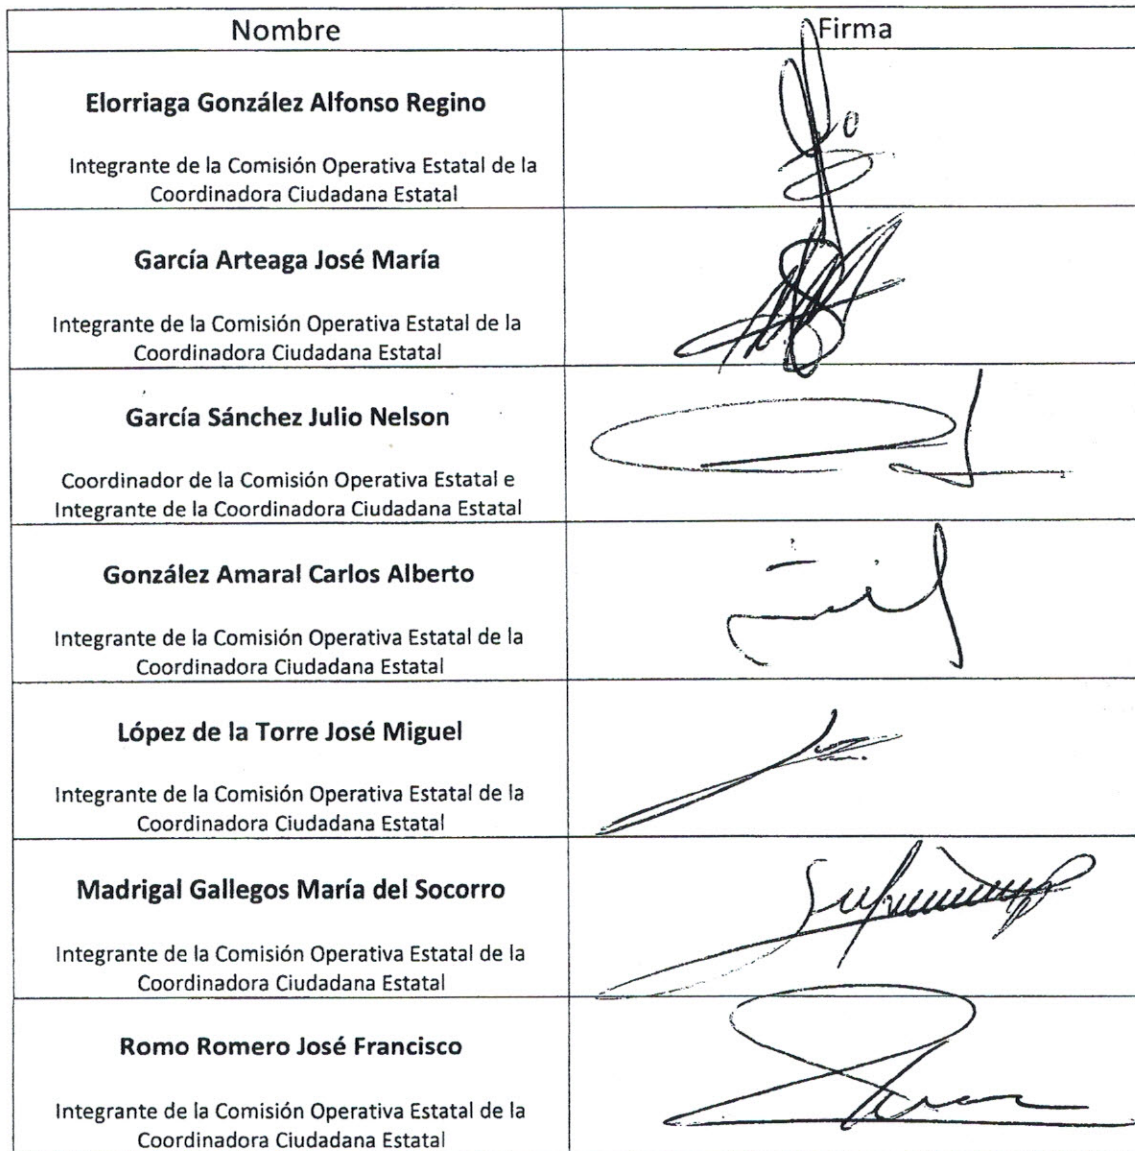 Nombre Firma
Elorriaga González Alfonso Regino
Integrante de la Comisión Operativa Estatal de la
Coordinadora Ciudadana Estatal
García Arteaga José María
Integrante de la Comisión Operativa Estatal de la
Coordinadora Ciudadana Estatal
García Sánchez Julio Nelson
Coordinador de la Comisión Operativa Estatal e
Integrante de la Coordinadora Ciudadana Estatal
González Amaral Carlos Alberto
Integrante de la Comisión Operativa Estatal de la
Coordinadora Ciudadana Estatal
López de la Torre José Miguel
Integrante de la Comisión Operativa Estatal de la
Coordinadora Ciudadana Estatal
Madrigal Gallegos María del Socorro
Integrante de la Comisión Operativa Estatal de la
Coordinadora Ciudadana Estatal
Romo Romero José Francisco
Integrante de la Comisión Operativa Estatal de la
Coordinadora Ciudadana Estatal